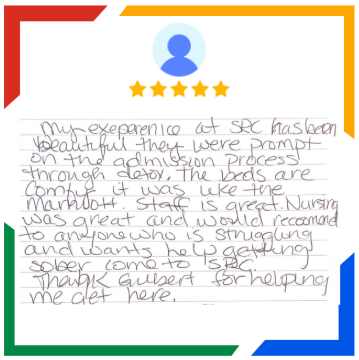 My exeperenice at SRC has been
beautiful they were prompt
on the admission process
through detox. The beds are
comfy it was like the
Marriott. Staff is great. Nursing
was great and would reccomend
to anyone who is struggling
and wants help getting
sober come to SRC.
Thank Guilbert for helping
me get here.